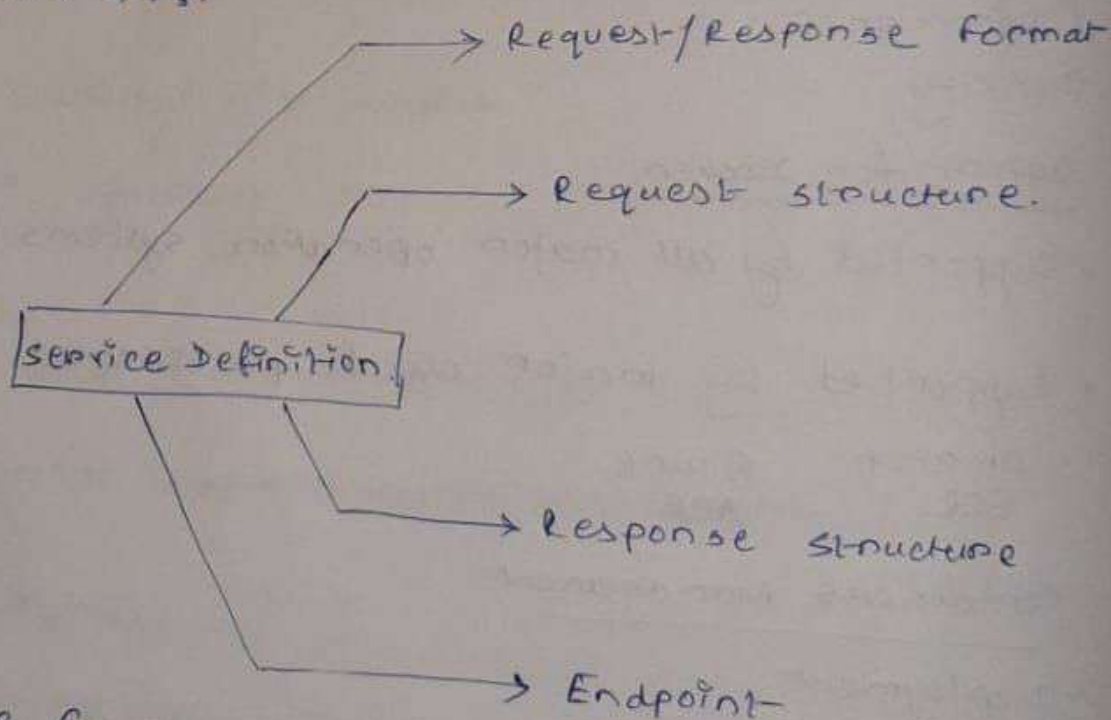 Request/Response format
Request structure.
Service Definition.
Response structure
Endpoint